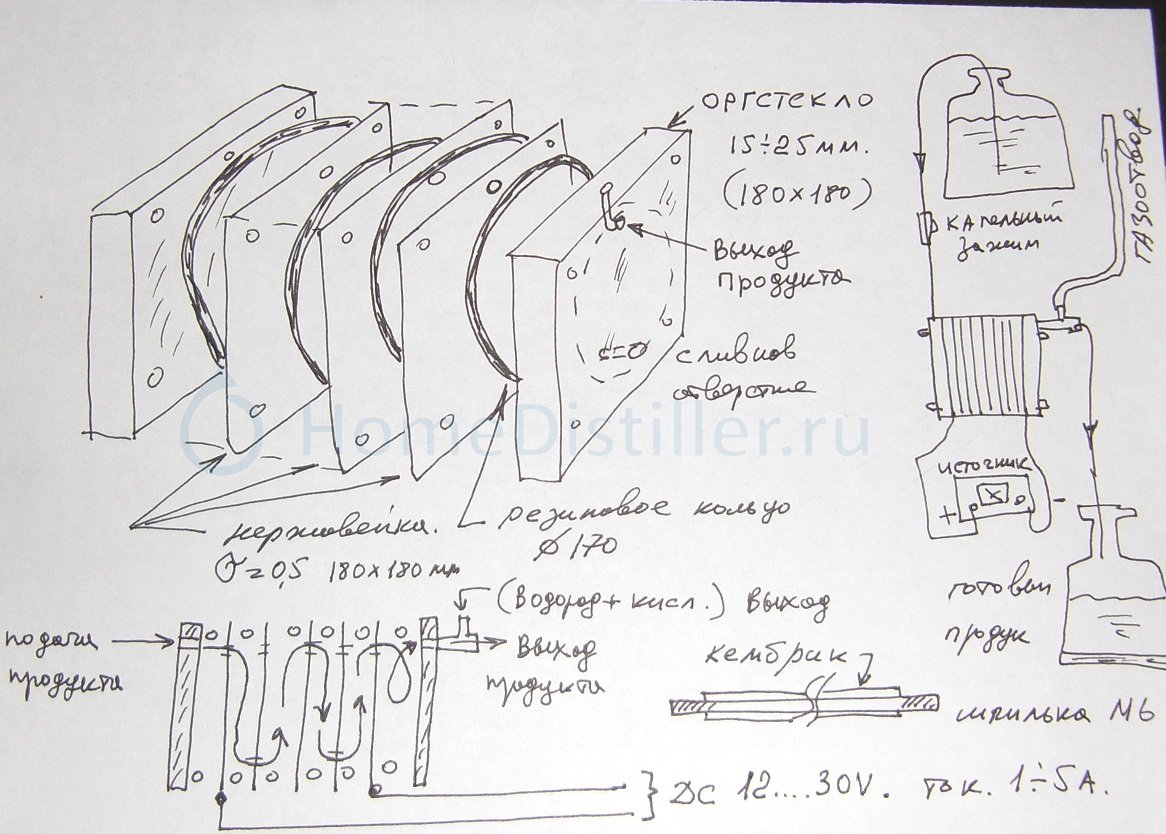 оргстекло
15÷25 мм.
(180×180)
выход
продукта
сливное
отверстие
нержавейка.
σ=0,5 180×180 мм
резиновое кольцо
∅170
HomeDistiller.ru
капельный
зажим
газоотвод.
источник
+ -
готовый
продук
(водород + кисл.) выход
подача
продукта
выход
продукта
кембрик
шпилька М6
DC 12....30V. ток. 1÷5А.